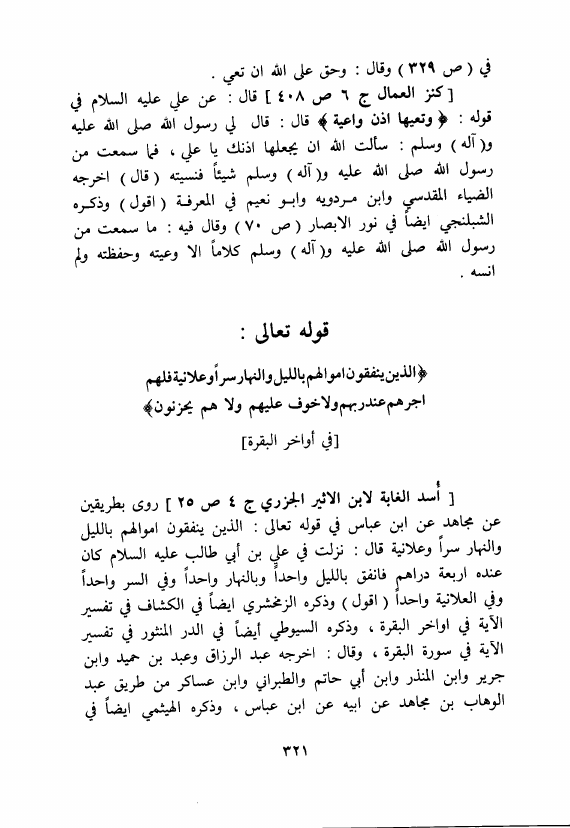 في ( ص ٣٢٩ ) وقال : وحق على الله ان تعي .
[ كنز العمال ج ٦ ص ٤٠٨ ] قال : عن علي عليه السلام في
قوله : ﴿ وتعيها اذن واعية ﴾ قال : قال لي رسول الله صلى الله عليه
و( آله ) وسلم : سألت الله ان يجعلها اذنك يا علي ، فما سمعت من
رسول الله صلى الله عليه و( آله ) وسلم شيئاً فنسيته ( قال ) اخرجه
الضياء المقدسي وابن مردويه وابو نعيم في المعرفة ( اقول ) وذكره
الشبلنجي ايضاً في نور الابصار ( ص ٧٠ ) وقال فيه : ما سمعت من
رسول الله صلى الله عليه و( آله ) وسلم كلاماً الا وعيته وحفظته ولم
انسه .
قوله تعالى :
﴿الذين ينفقون اموالهم بالليل والنهار سراً وعلانية فلهم
اجرهم عند ربهم ولا خوف عليهم ولا هم يحزنون﴾
[في أواخر البقرة]
[ أُسد الغابة لابن الاثير الجزري ج ٤ ص ٢٥ ] روى بطريقين
عن مجاهد عن ابن عباس في قوله تعالى : الذين ينفقون اموالهم بالليل
والنهار سراً وعلانية قال : نزلت في علي بن أبي طالب عليه السلام كان
عنده اربعة دراهم فانفق بالليل واحداً وبالنهار واحداً وفي السر واحداً
وفي العلانية واحداً ( اقول ) وذكره الزمخشري ايضاً في الكشاف في تفسير
الآية في اواخر البقرة ، وذكره السيوطي أيضاً في الدر المنثور في تفسير
الآية في سورة البقرة ، وقال : اخرجه عبد الرزاق وعبد بن حميد وابن
جرير وابن المنذر وابن أبي حاتم والطبراني وابن عساكر من طريق عبد
الوهاب بن مجاهد عن ابيه عن ابن عباس ، وذكره الهيثمي ايضاً في
٣٢١